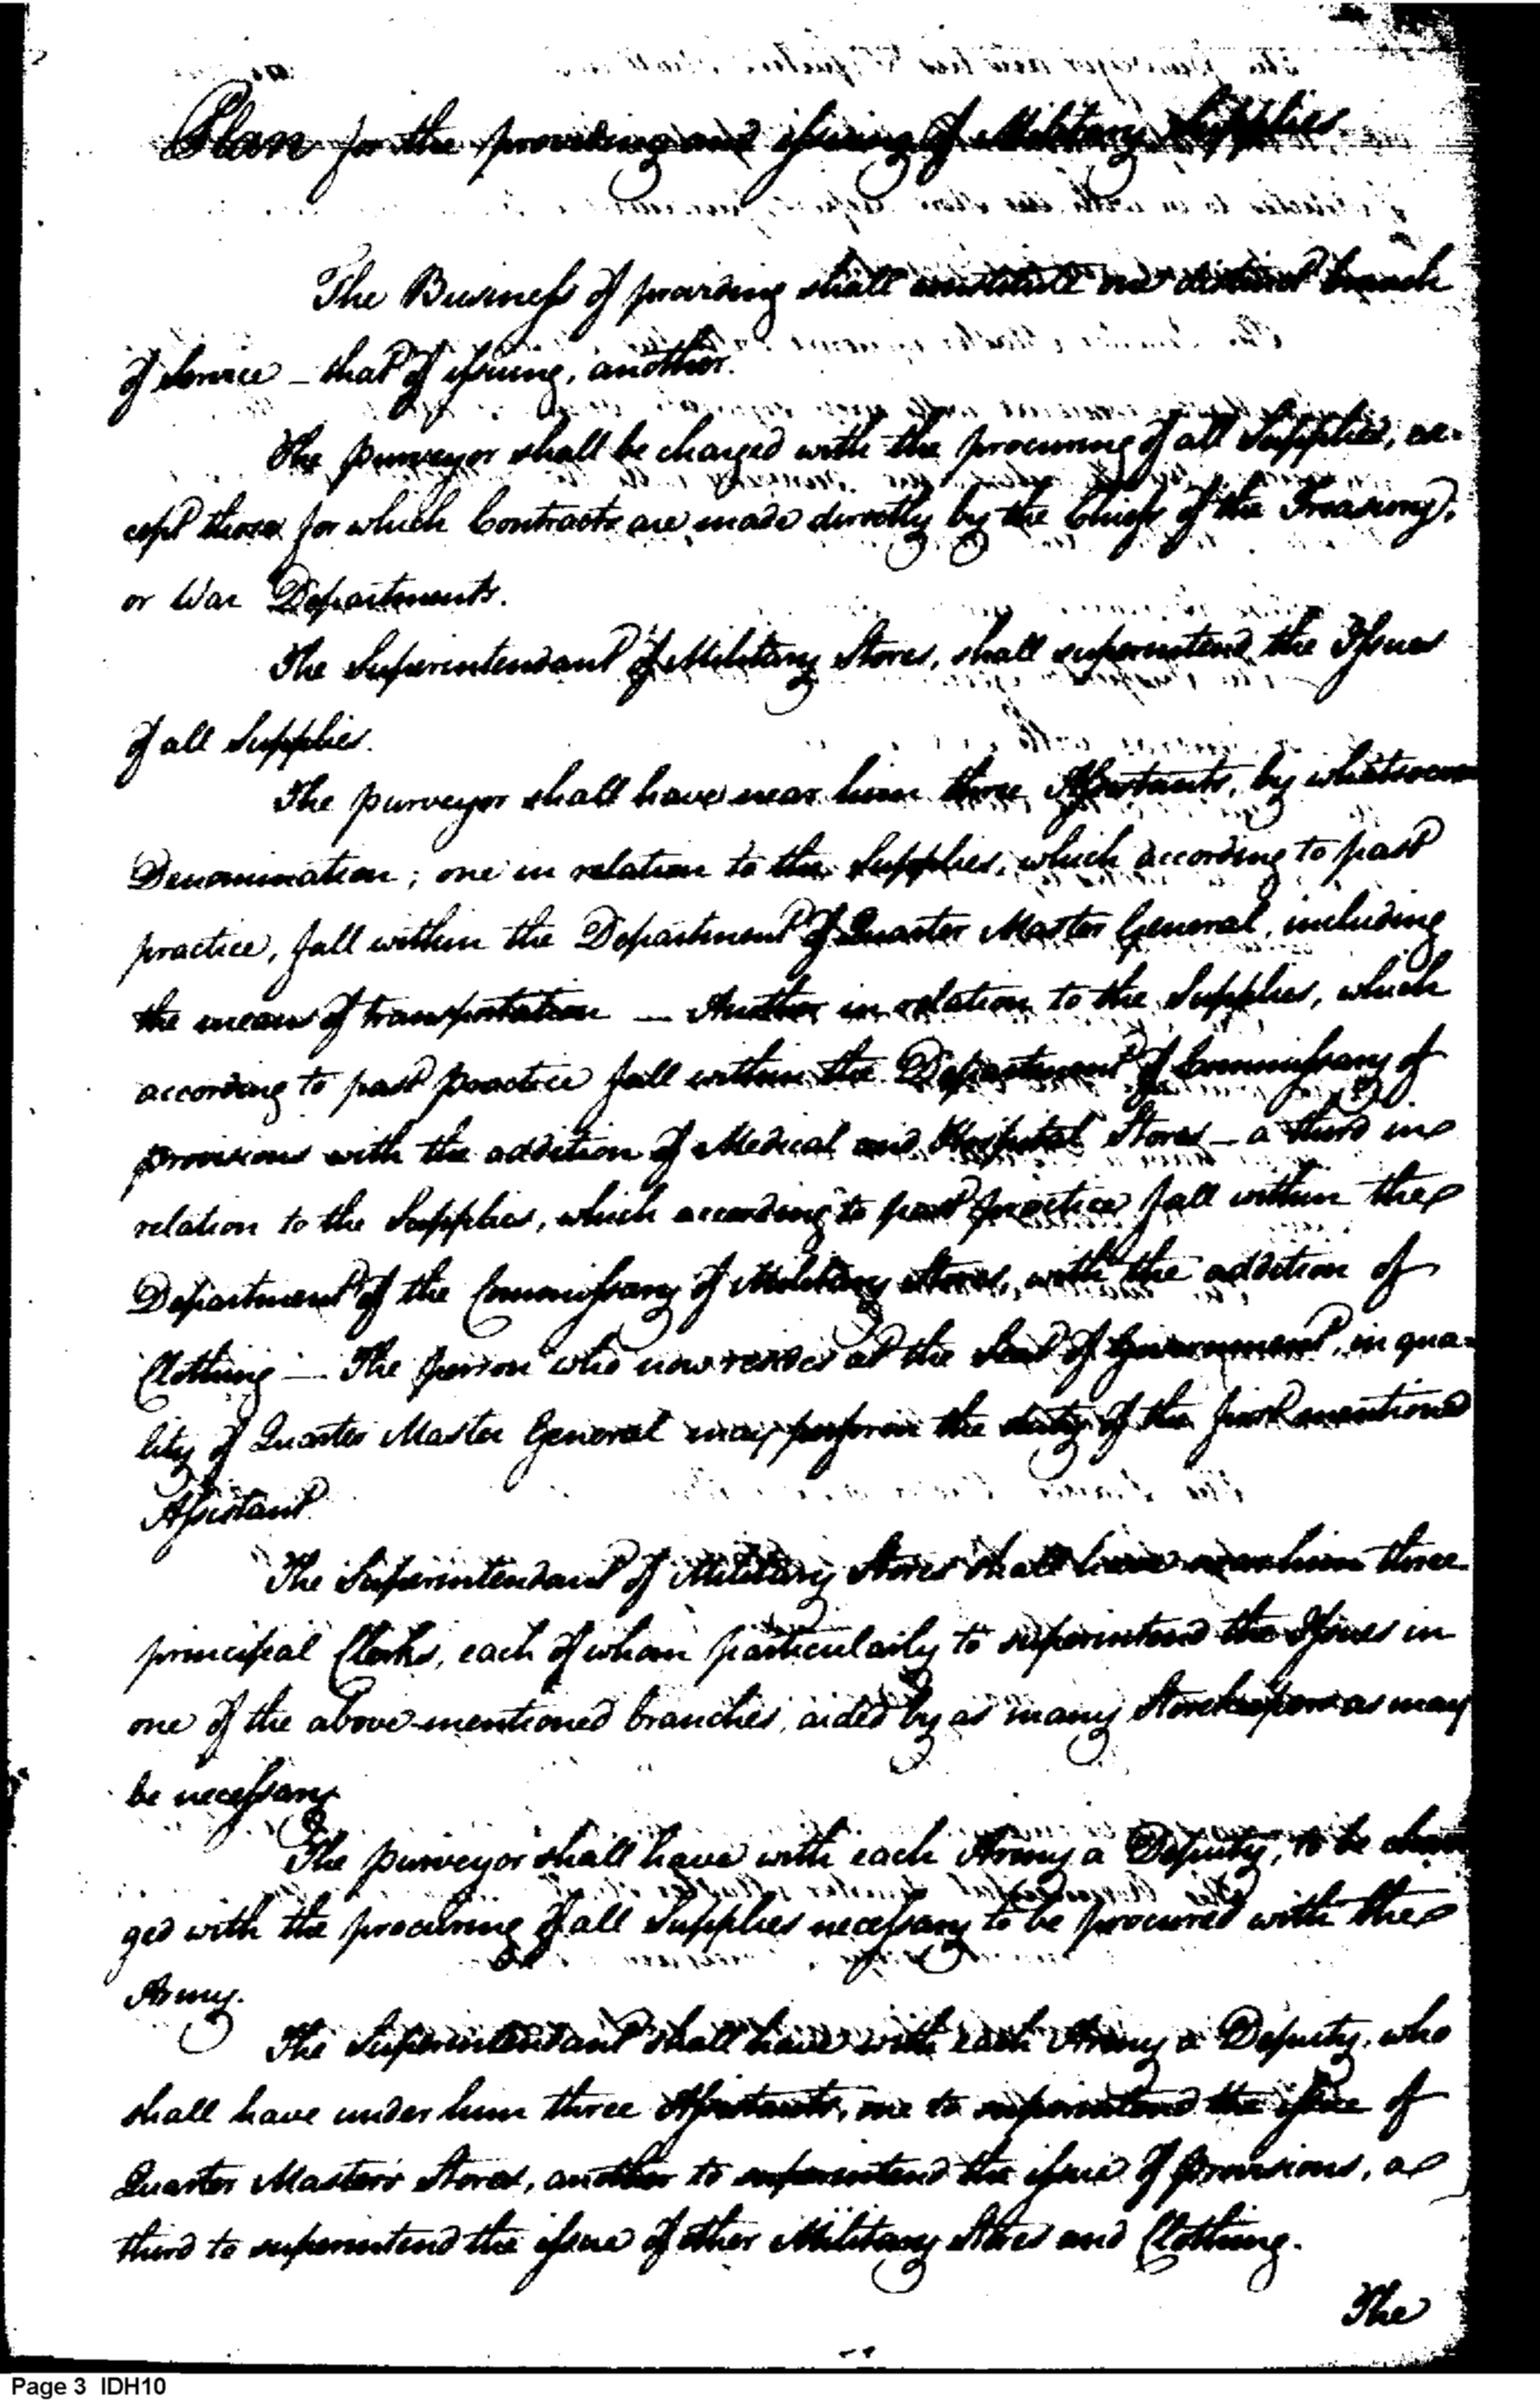 Plan for the providing and issuing of Military Supplies.
The Business of providing shall constitute one distinct branch
of Service – that of issuing, another.
The purveyor shall be charged with the procuring of all Supplies, ex-
cept those for which Contracts are made directly by the Chiefs of the Treasury,
or War Departments.
The Superintendant of Military Stores, shall superintend the Issues
of all Supplies.
The purveyor shall have near him three Assistants, by whatsoever
Denomination; one in relation to the Supplies, which according to past
practice, fall within the Department of Quarter Master General, including
the means of transportation — Another in relation to the Supplies, which
according to past practice fall within the Department of Commissary of
provisions with the addition of Medical and Hospital Stores – a third in
relation to the Supplies, which according to past practice fall within the
Department of the Commissary of Military Stores, with the addition of
Clothing — The person who now resides at the Seat of Government, in qua-
lity of Quarter Master General may perform the duty of the first mentioned
Assistant.
The Superintendant of Military Stores shall have near him three
principal Clerks, each of whom particularly to superintend the Issues in
one of the above-mentioned branches, aided by as many Storekeepers as may
be necessary
The purveyor shall have with each Army a Deputy, to be char
ged with the procuring of all Supplies necessary to be procured with the
Army.
The Superintendant shall have with each Army a Deputy, who
shall have under him three Assistants, one to superintend the issue of
Quarter Masters Stores, another to superintend the issue of provisions, a
third to superintend the issue of other Military Stores and Clothing.
The
Page 3 IDH10